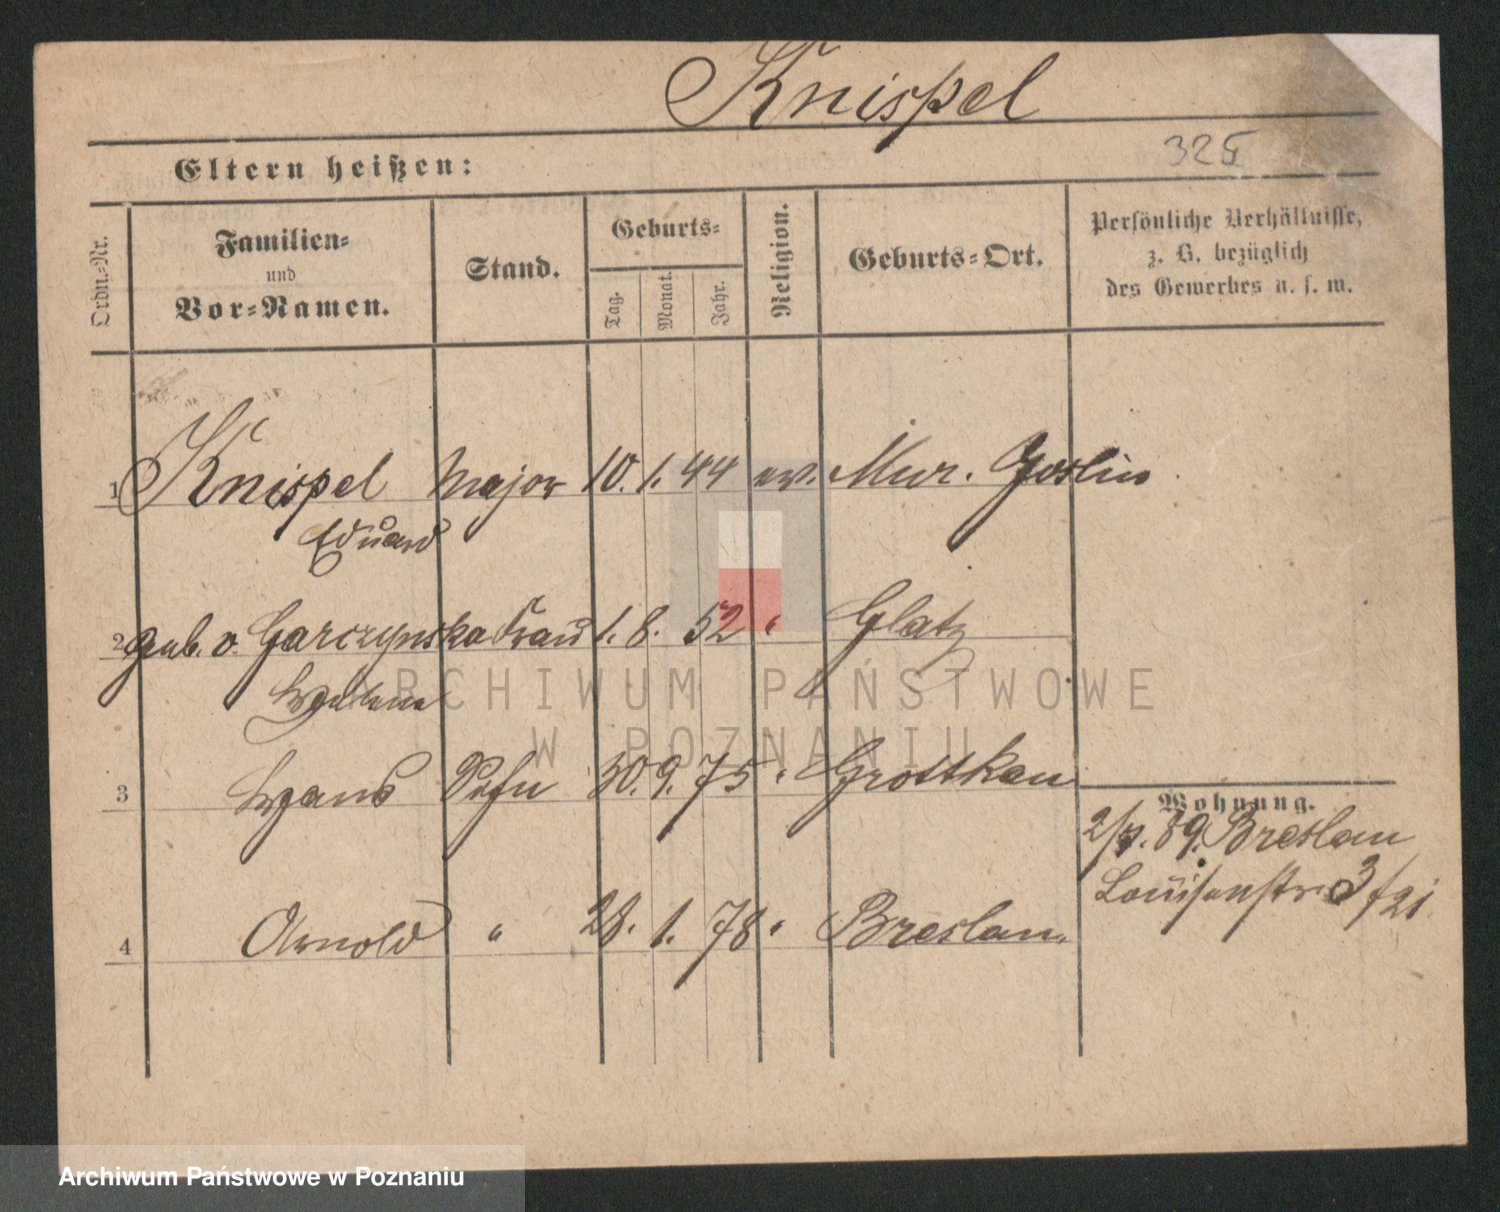 Knispel
325
Eltern heißen:
Ordn.-Nr.
Familien-
und
Vor-Namen.
Stand.
Geburts-
Tag.
Monat.
Jahr.
Religion.
Geburts-Ort.
Persönliche Verhältnisse,
z. B. bezüglich
des Gewerbes u. s. w.
1 Knispel Major 10. 1. 44 ev. Mur. Goslin
Eduard
2 geb. v. Garczynska Frau 1. 8. 52 " Glatz
Helene
3 Hans Sohn 30. 9. 75 " Grottkau
Wohnung.
2/4. 89. Breslau
Louisenstr. 3
4 Arnold " 28. 1. 78 " Breslau.
ARCHIWUM PAŃSTWOWE
W POZNANIU
Archiwum Państwowe w Poznaniu